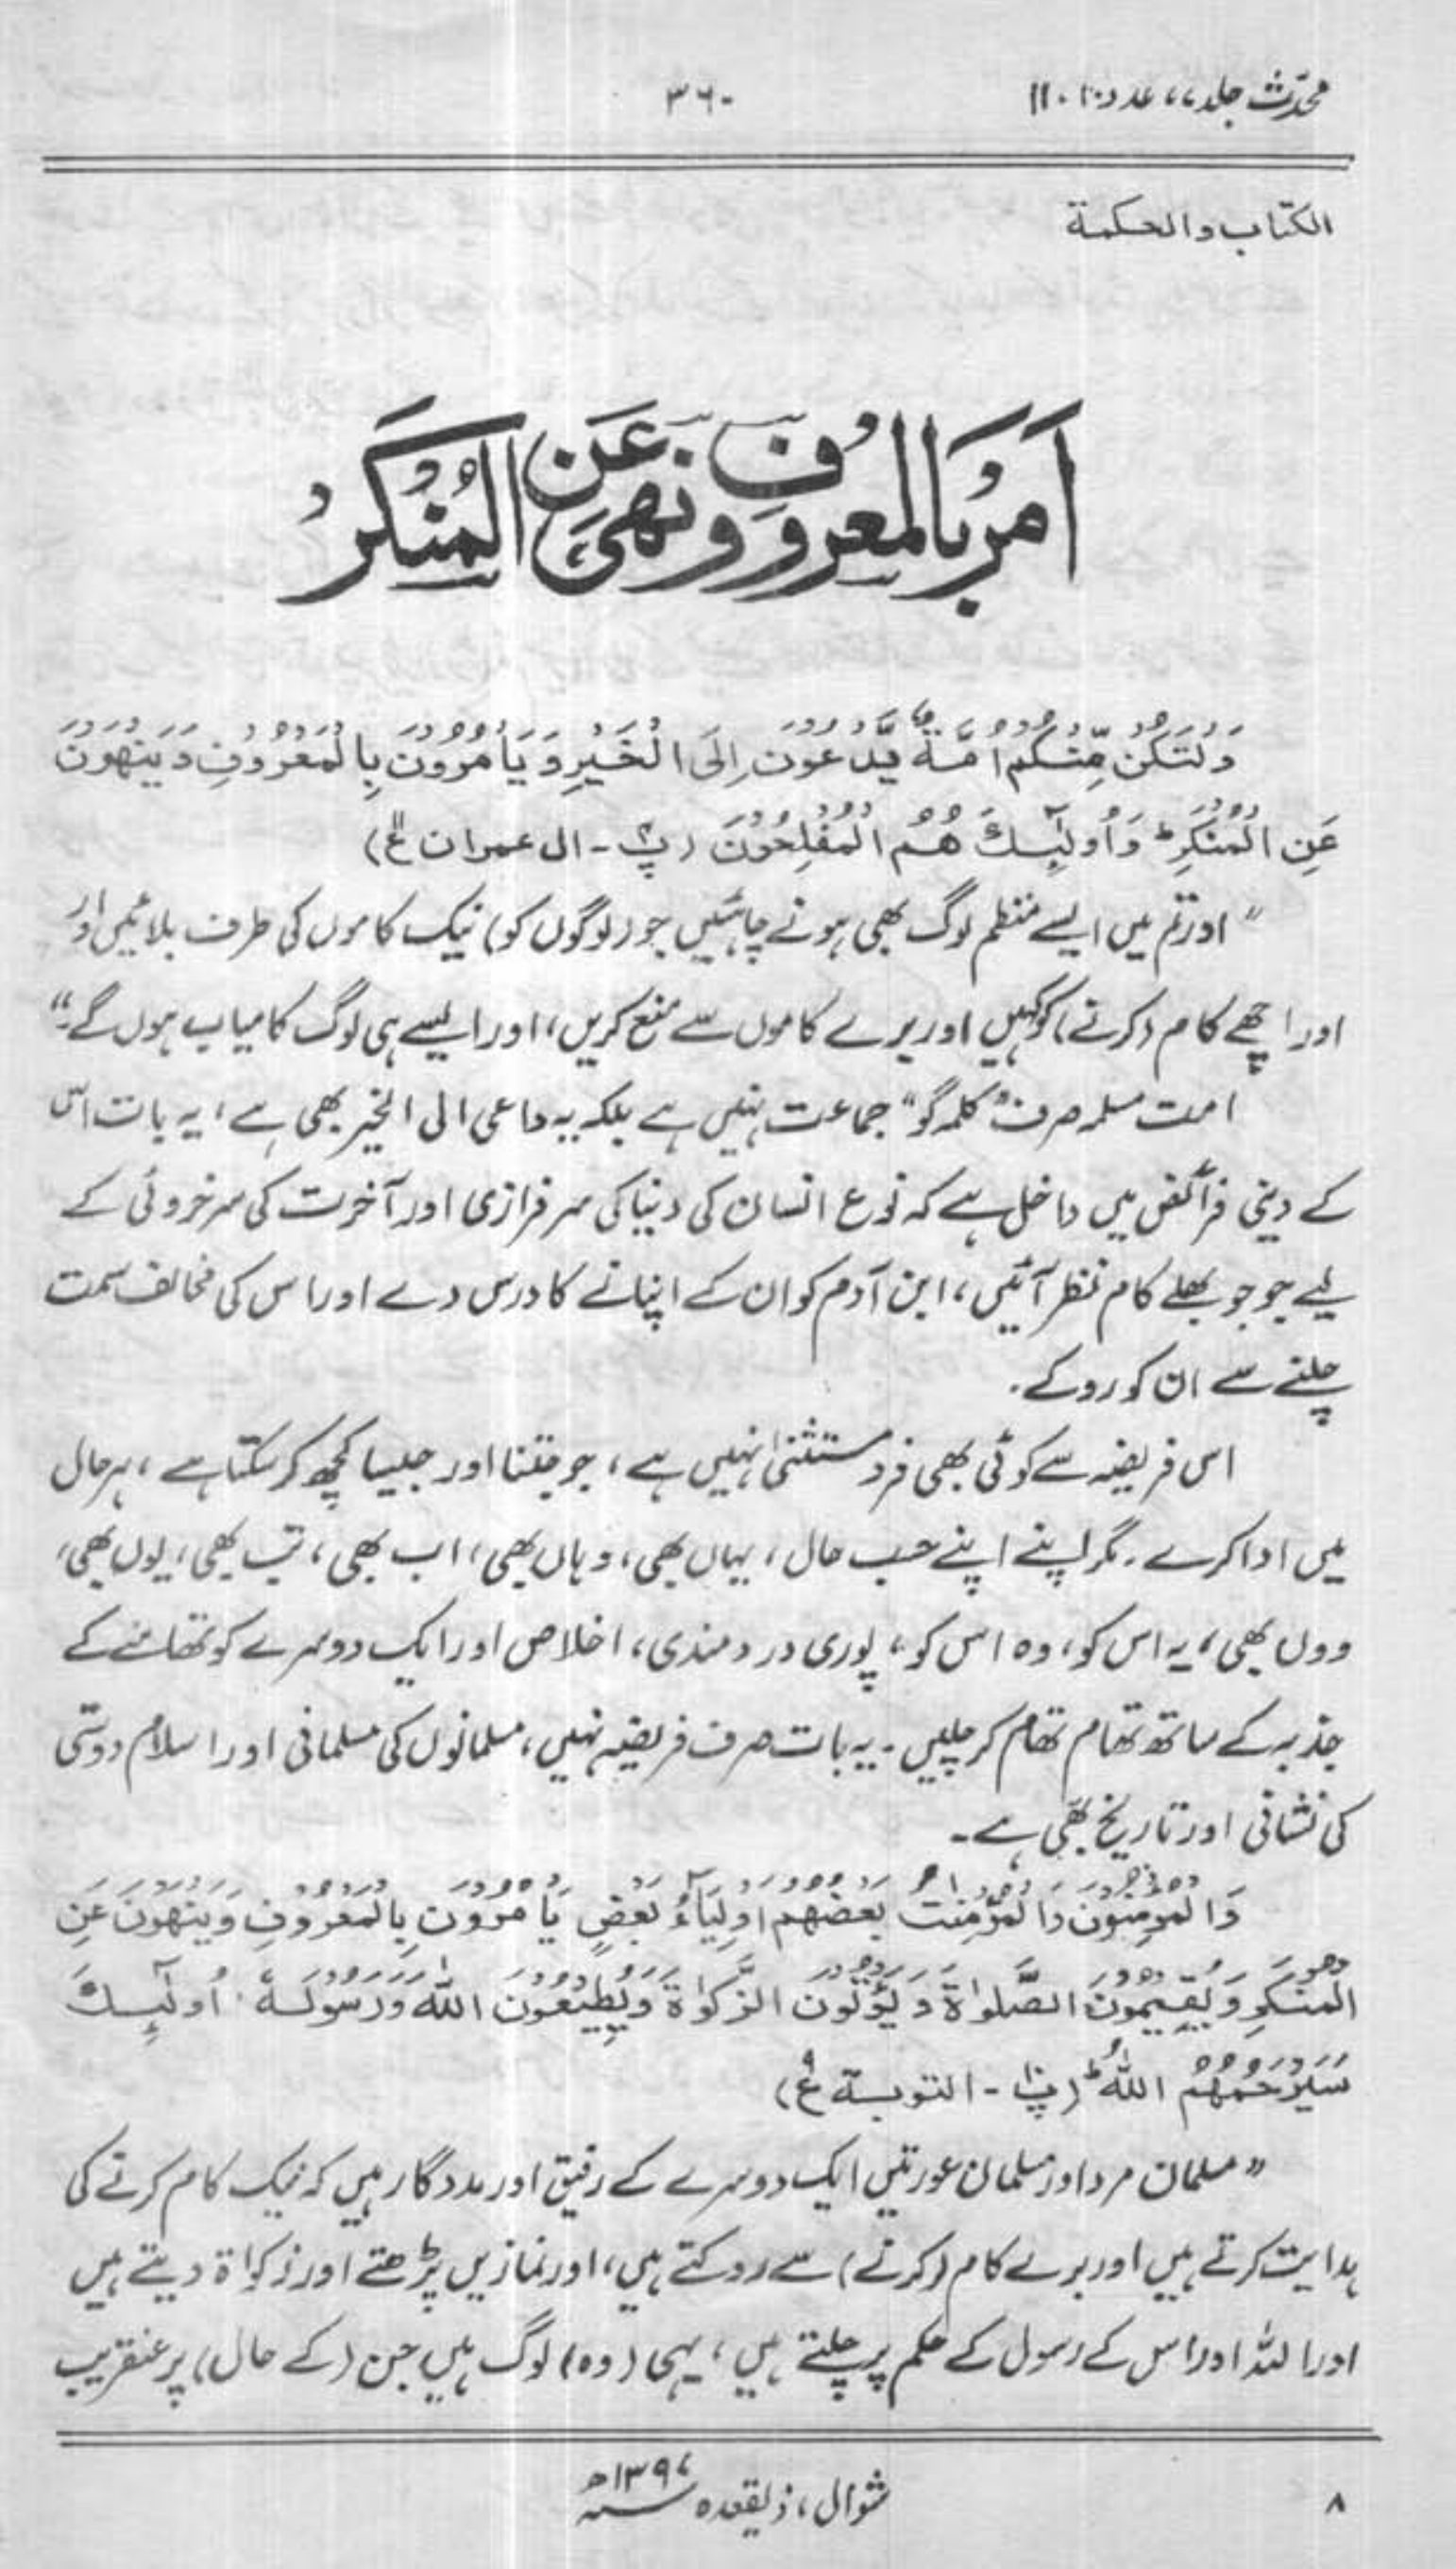 محدّث جلد ۷، عدد ۱۰، ۱۱
۳۶۰
الکتاب والحکمة
اَمر بالمعرُوف و نَهی عَنِ المُنکَر
وَلْتَکُنْ مِّنْکُمْ اُمَّةٌ یَّدْعُوْنَ اِلَی الْخَیْرِ وَ یَأْمُرُوْنَ بِالْمَعْرُوْفِ وَ یَنْهَوْنَ
عَنِ الْمُنْکَرِ ؕ وَ اُولٰٓئِكَ هُمُ الْمُفْلِحُوْنَ (پ۴ - ال عمران ع۱۱)
" اور تم میں ایسے منظم لوگ بھی ہونے چاہئیں جو (لوگوں کو) نیک کاموں کی طرف بلائیں اور
اور اچھے کام (کرتے) کو کہیں اور برے کاموں سے منع کریں، اور ایسے ہی لوگ کامیاب ہوں گے۔"
امت مسلمہ صرف "کلمہ گو" جماعت نہیں ہے بلکہ یہ داعی الی الخیر بھی ہے، یہ بات اس
کے دینی فرائض میں داخل ہے کہ نوع انسان کی دنیا کی سرفرازی اور آخرت کی سرخروئی کے
لیے جو جو بھلے کام نظر آئیں، ابن آدم کو ان کے اپنانے کا درس دے اور اس کی مخالف سمت
چلنے سے ان کو روکے۔
اس فریضہ سے کوئی بھی فرد مستثنیٰ نہیں ہے، جو جتنا اور جیسا کچھ کر سکتا ہے، ہر حال
میں ادا کرے۔ مگر اپنے اپنے حسب حال، یہاں بھی، وہاں بھی، اب بھی، تب بھی، یوں بھی،
ووں بھی، یہ اس کو، وہ اس کو، پوری دردمندی، اخلاص اور ایک دوسرے کو تھامنے کے
جذبہ کے ساتھ تھام تھام کر چلیں۔ یہ بات صرف فریضہ نہیں، مسلمانوں کی مسلمانی اور اسلام دوستی
کی نشانی اور تاریخ بھی ہے۔
وَالْمُؤْمِنُوْنَ وَالْمُؤْمِنٰتُ بَعْضُهُمْ اَوْلِیَآءُ بَعْضٍ یَأْمُرُوْنَ بِالْمَعْرُوْفِ وَیَنْهَوْنَ عَنِ
الْمُنْکَرِ وَیُقِیْمُوْنَ الصَّلٰوةَ وَیُؤْتُوْنَ الزَّکٰوةَ وَیُطِیْعُوْنَ اللّٰهَ وَرَسُوْلَهٗ ؕ اُولٰٓئِكَ
سَیَرْحَمُهُمُ اللّٰهُ ؕ (پ۱۰ - التوبة ع۹)
" مسلمان مرد اور مسلمان عورتیں ایک دوسرے کے رفیق اور مددگار ہیں کہ نیک کام کرنے کی
ہدایت کرتے ہیں اور برے کام (کرنے) سے روکتے ہیں، اور نمازیں پڑھتے اور زکواة دیتے ہیں
اور اللہ اور اس کے رسول کے حکم پر چلتے ہیں، یہی (وہ) لوگ ہیں جن (کے حال) پر عنقریب
شوال، ذیقعدہ ۱۳۹۷ھ
۸